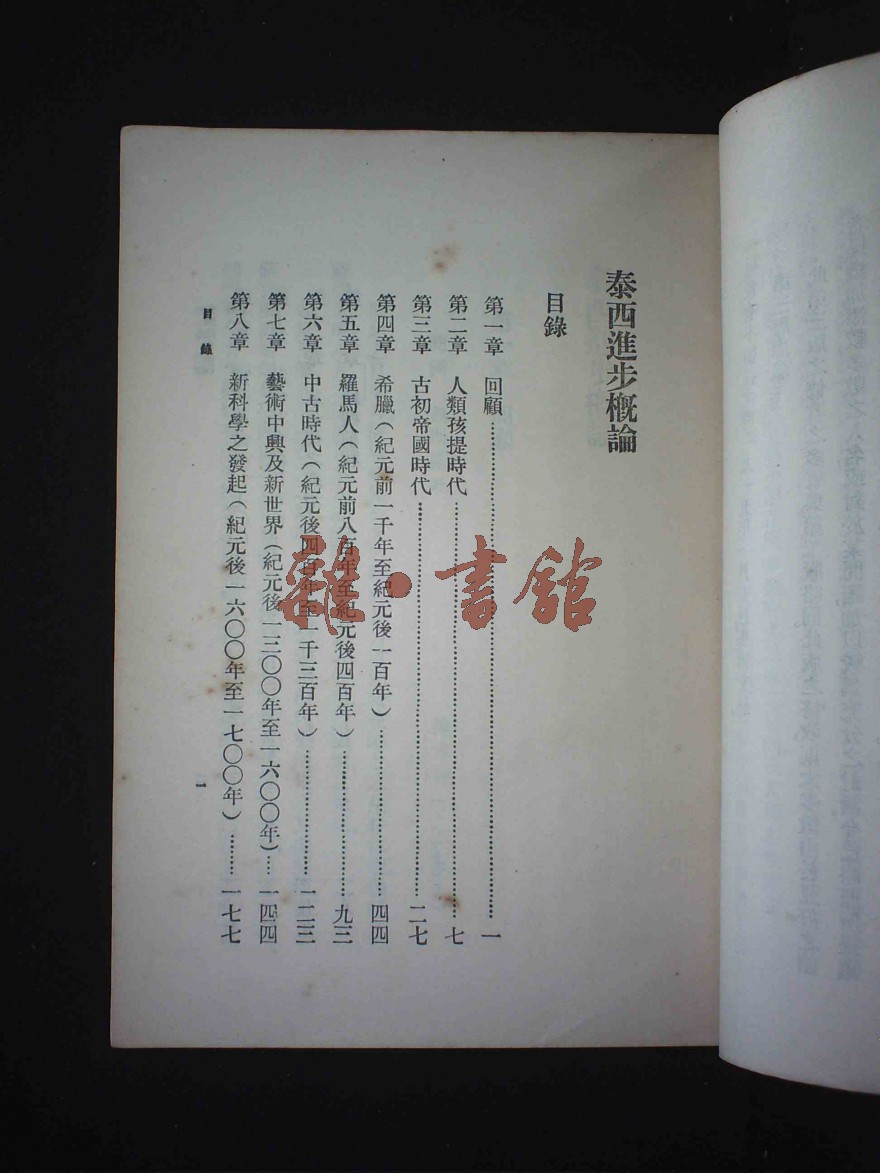 泰西進步概論
目錄
第一章 回顧……一
第二章 人類孩提時代……七
第三章 古初帝國時代……二七
第四章 希臘（紀元前一千年至紀元後一百年）……四四
第五章 羅馬人（紀元前八百年至紀元後四百年）……九三
第六章 中古時代（紀元後四百年至一千三百年）……一二三
第七章 藝術中興及新世界（紀元後一三〇〇年至一六〇〇年）……一四四
第八章 新科學之發起（紀元後一六〇〇年至一七〇〇年）……一七七
目錄 一
雜·書館